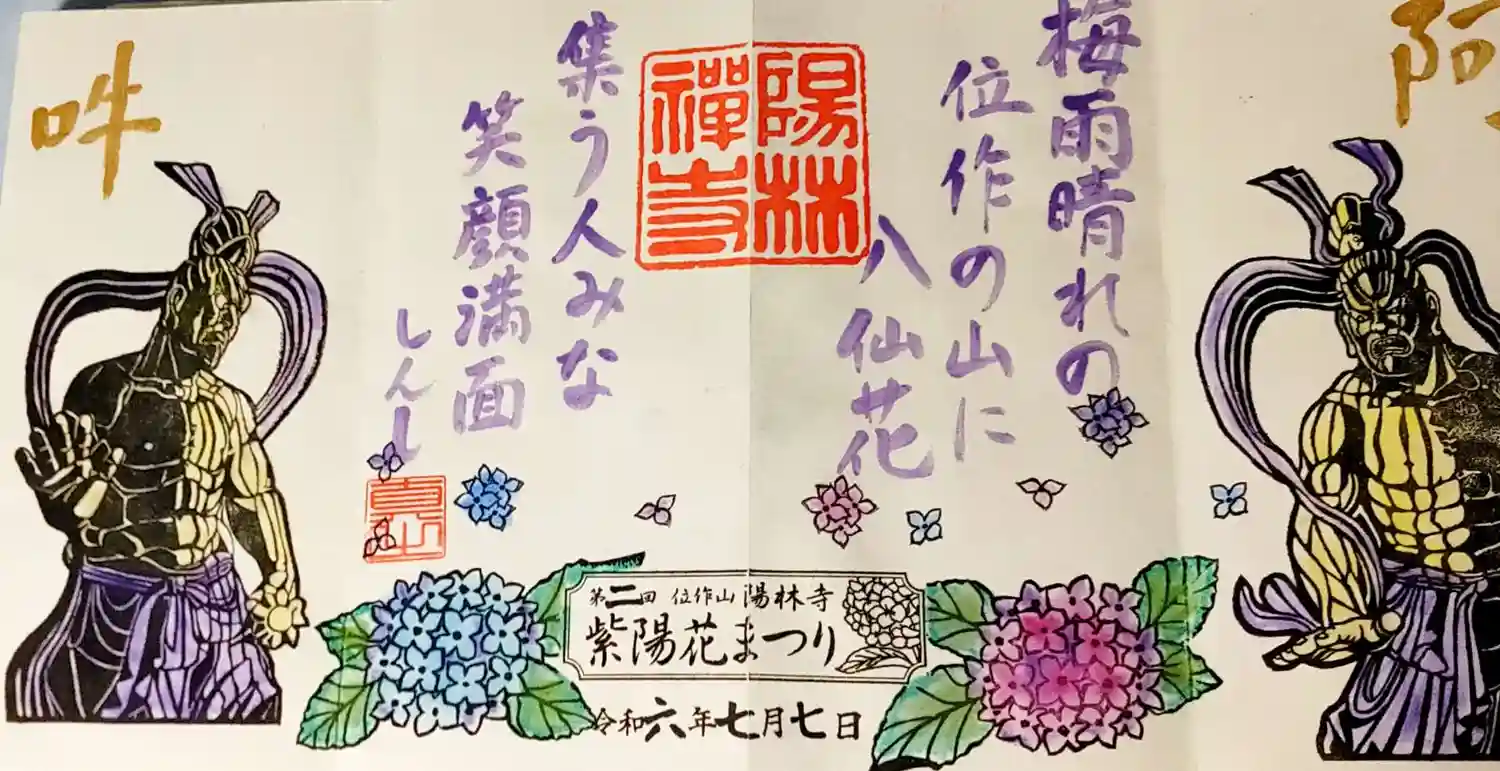 阿
梅雨晴れの
位作の山に
八仙花
陽林
禅寺
集う人みな
笑顔満面
しんし
真山
吽
第二回 位作山 陽林寺
紫陽花まつり
令和六年七月七日